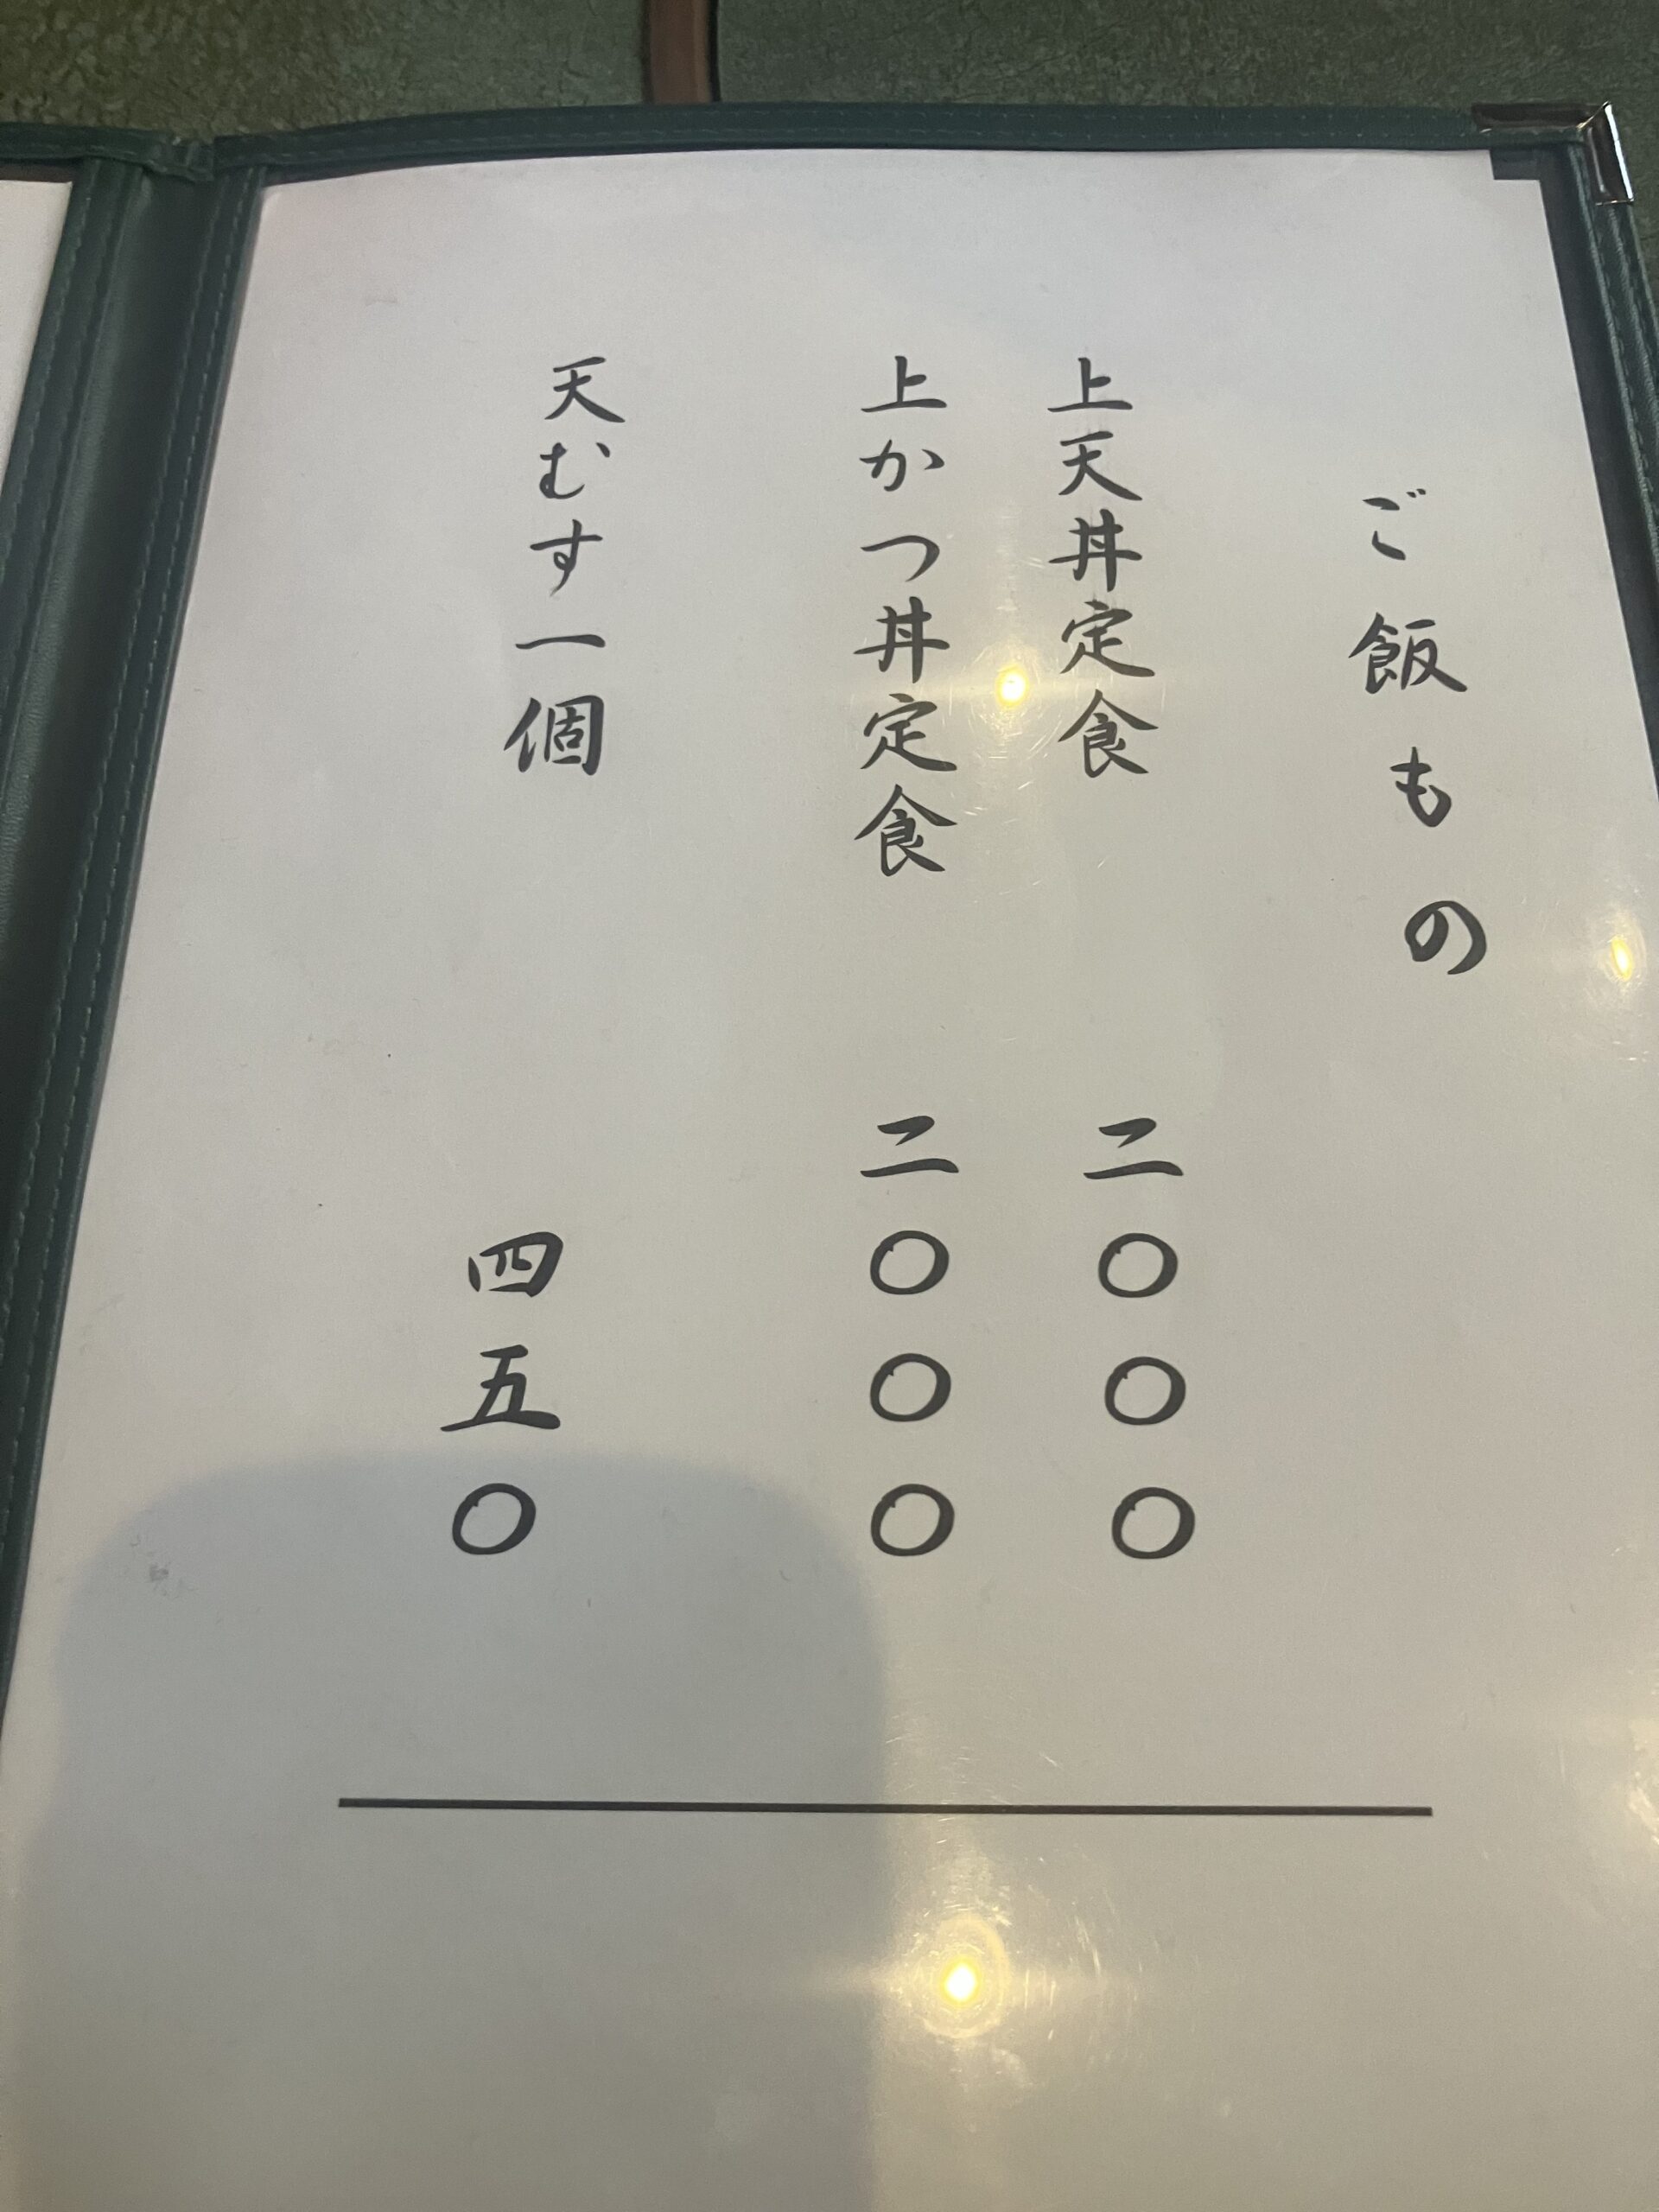 ご飯もの
上天丼定食 二〇〇〇
上かつ丼定食 二〇〇〇
天むす一個 四五〇